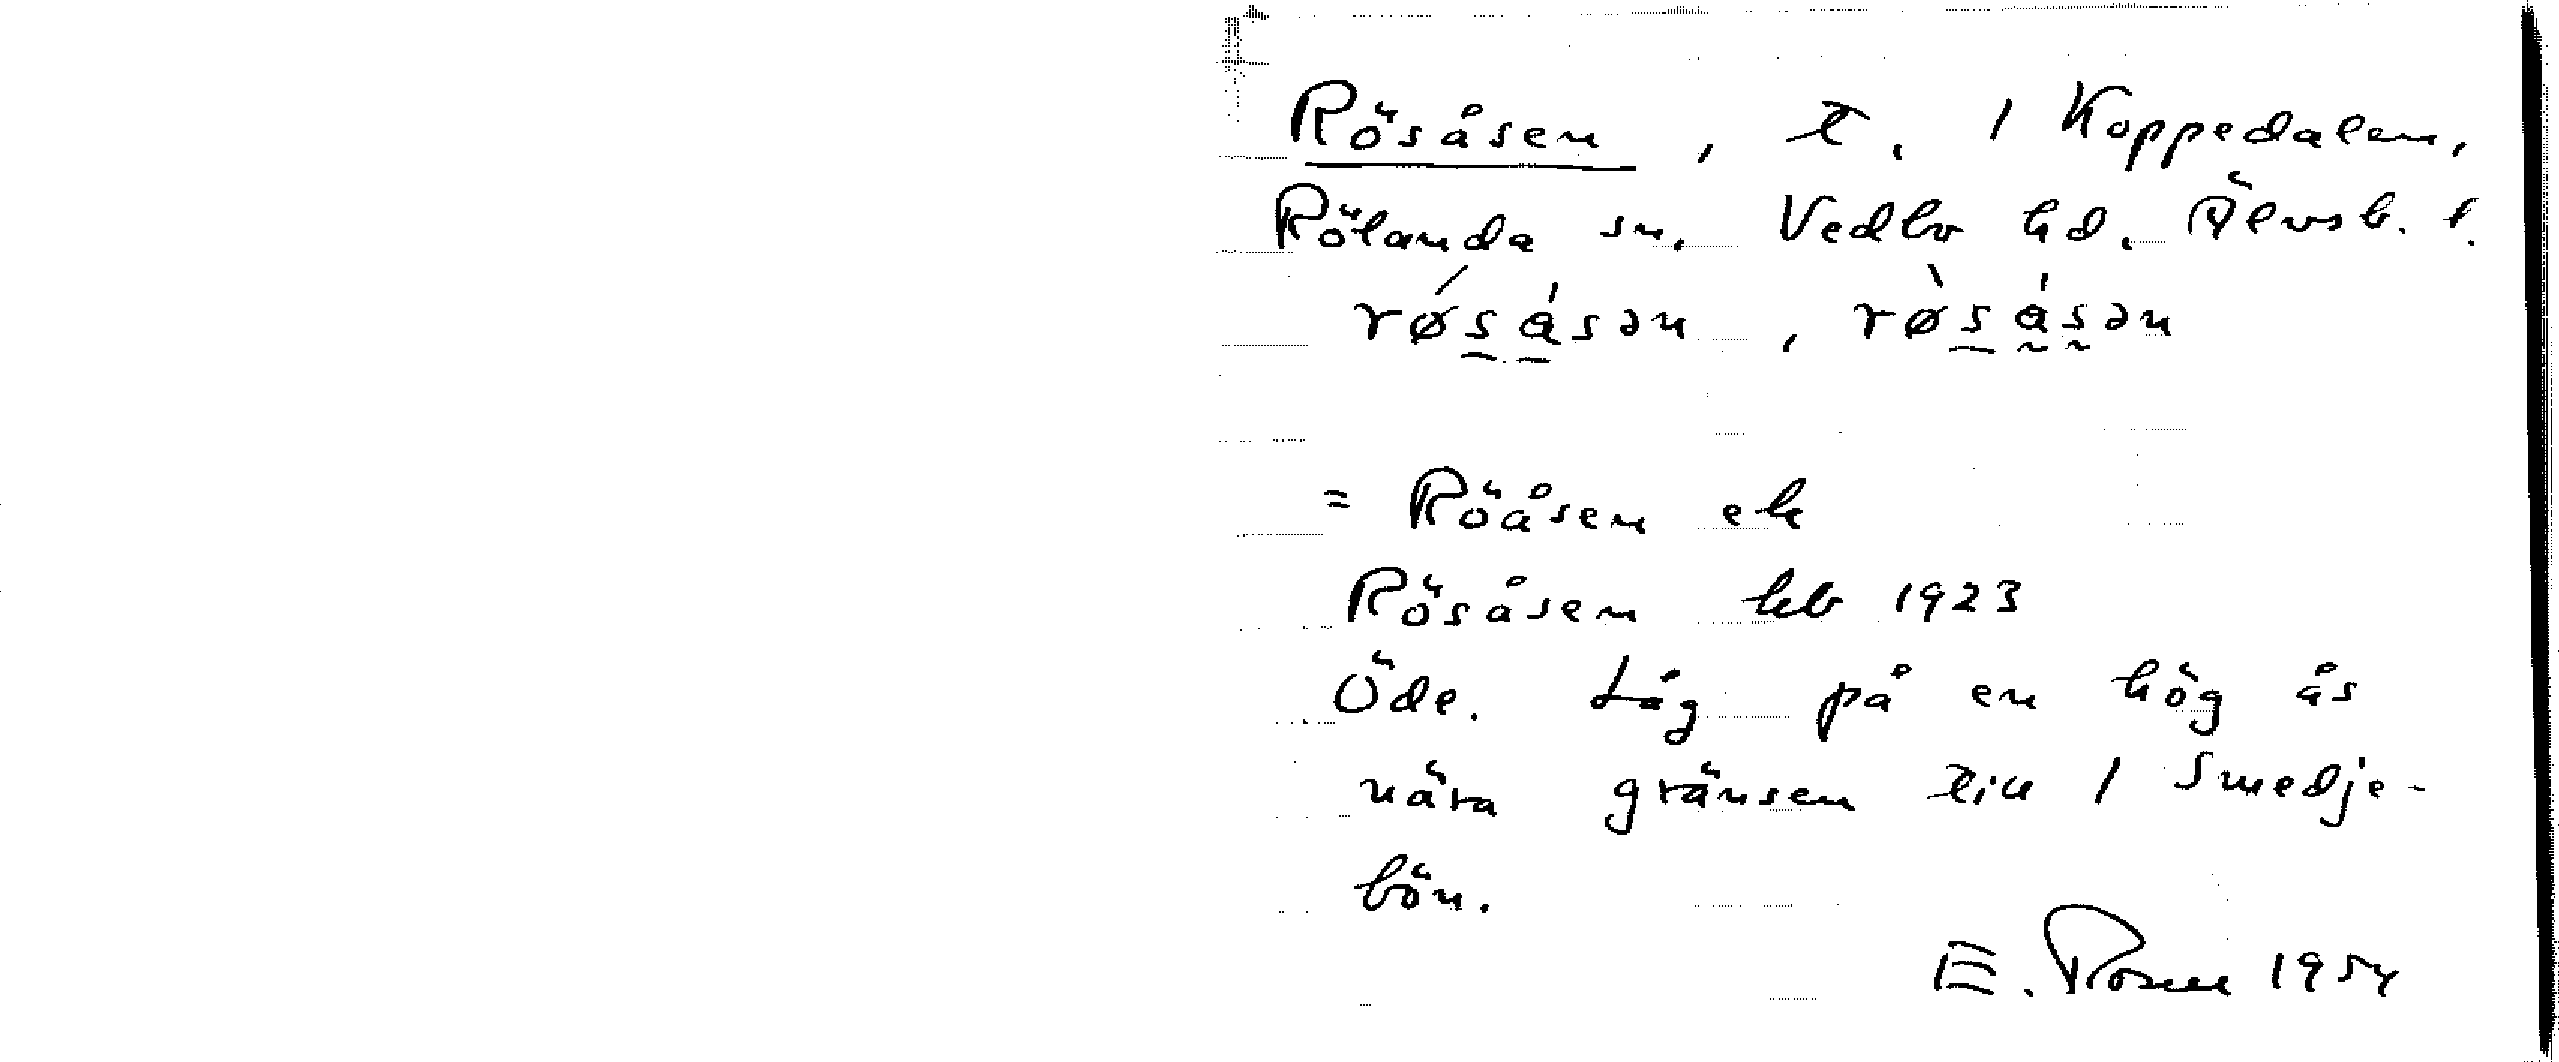 Rösåsen, t. 1 Koppedalen,
Rölanda sn. Vedbo hd. Älvsb. l.
røsåsən, røsåsən
= Röåsen ek
Rösåsen kb 1923
Öde. Låg på en hög ås
nära gränsen till 1 Smedje-
bön.
E. Rosell 1954